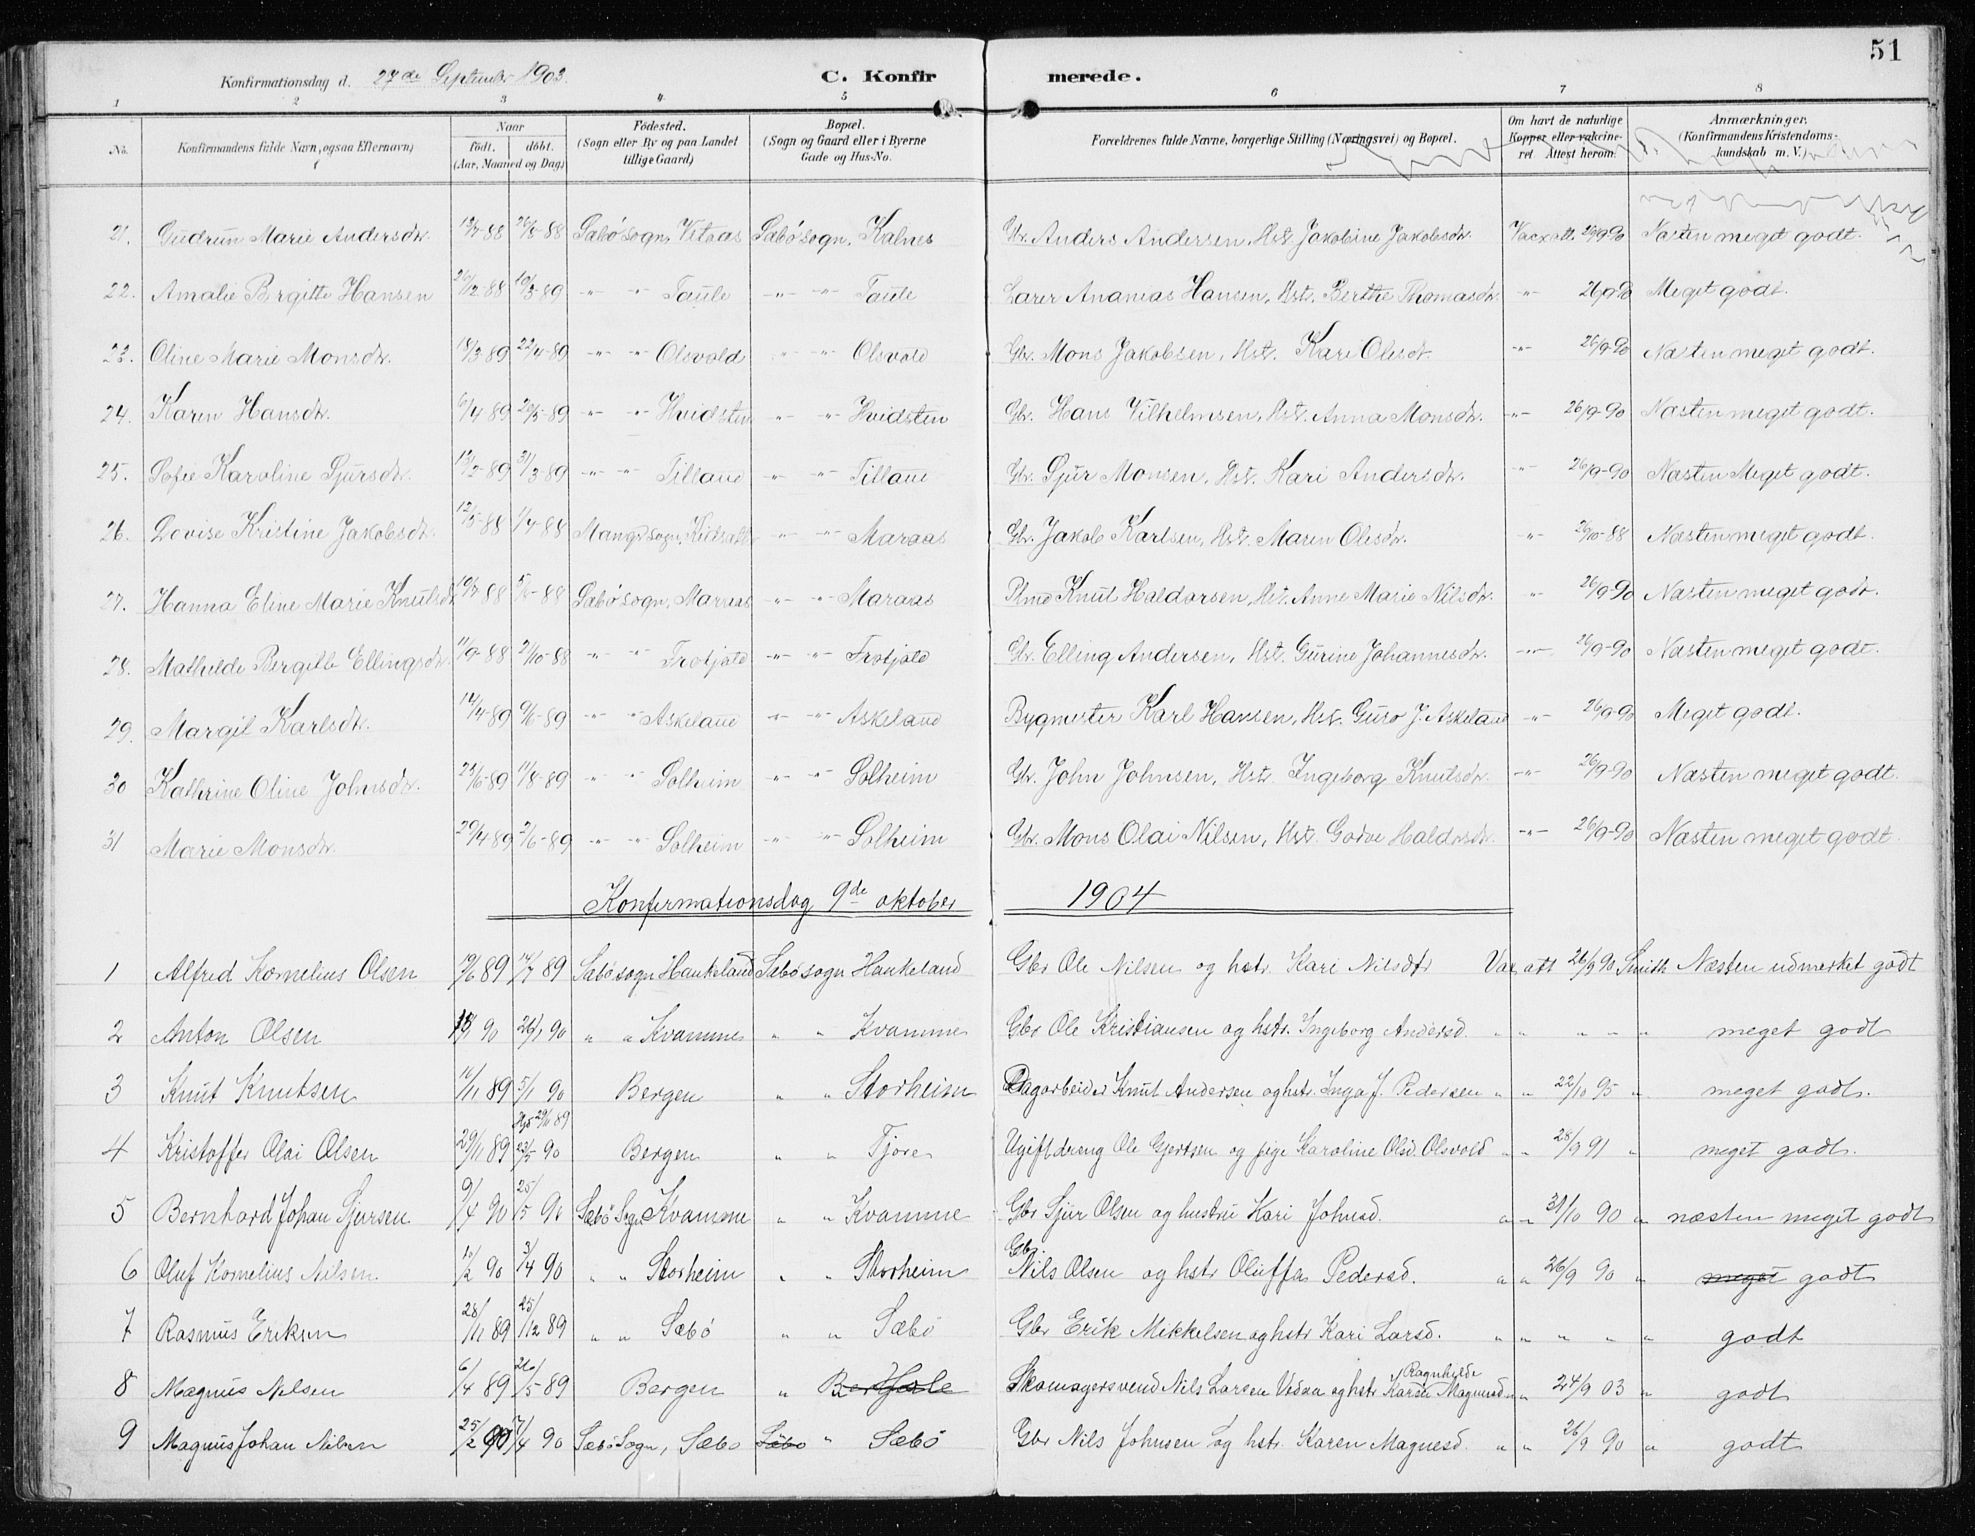 51
Konfirmationsdag d. 27de September 1903.
C. Konfirmerede.
1 2 3 4 5 6 7 8
No. Konfirmandens fulde Navn, ogsaa Efternavn) Naar født. døbt. (Aar, Maaned og Dag) Fødested. (Sogn eller By og paa Landet tillige Gaard) Bopæl. (Sogn og Gaard eller i Byerne Gade og Hus-No. Forældrenes fulde Navne, borgerlige Stilling (Næringsvei) og Bopæl. Om havt de naturlige Kopper eller vakcineret Attest herom. Anmærkninger. (Konfirmandens Kristendomskundskab m. V.)
21. Gudrun Marie Andersdtr. 88 88 Sæbø sogn, Vetaas Sæbø sogn, Kalnes Gbr. Anders Andersen, Hst. Jakobine Jakobsdtr. Vacx att. 26/9-90 Næsten meget godt.
22. Amalie Birgitte Hansen 26/12-88 10/3-89 -"- -"- Taule -"- -"- Taule Lærer Ananias Hansen, Hst. Berthe Thomasdtr. -"- 26/9-90 Meget godt.
23. Oline Marie Monsdtr. 14/3 89 22/4-89 -"- -"- Olsvold -"- -"- Olsvold Gbr. Mons Jakobsen, Hst. Kari Olesdt. -"- 26/9-90 Næsten meget godt.
24. Karen Hansdtr. 6/4 89 26/5-89 -"- -"- Hvidsten -"- -"- Hvidsten Gbr. Hans Vilhelmsen, Hst. Anna Monsdtr. -"- 26/9-90 Næsten meget godt.
25. Sofie Karoline Sjursdtr. 13/2-89 31/3-89 -"- -"- Tillaue -"- -"- Tillaue Gbr. Sjur Monsen, Hst. Kari Andersdtr. -"- 26/9-90 Næsten Meget godt.
26. Lovise Kristine Jakobsdtr. 12/5-88 /4-88 Mangersogn, -"- -"- Maraas Gbr. Jakob Karlsen, Hst. Maren Olesdtr. -"- 26/10-88 Næsten meget godt.
27. Hanna Eline Marie Knutsdtr 88 88 Sæbø sogn, Maraas -"- -"- Maraas Plmd Knut Haldorsen, Hst. Anne Marie Nilsdtr. -"- 26/9-90 Næsten meget godt.
28. Mathilde Bergitte Ellingsdtr. 11/9-88 2/10-88 -"- -"- Frotjold -"- -"- Frotjold Gbr. Elling Andersen, Hst. Gurine Johannesdtr. -"- 26/9-90 Næsten meget godt.
29. Margit Karlsdtr. 14/4-89 9/6-89 -"- -"- Askeland -"- -"- Askeland Bygmester Karl Hansen, Hst. Guro J. Askeland -"- 26/9-90 Meget godt.
30 Kathrine Oline Johnsdtr. 23/6-89 11/8-89 -"- -"- Solheim -"- -"- Solheim Gbr. John Johnsen, Hst. Ingeborg Knutsdtr. -"- 26/9-90 Næsten meget godt.
31 Marie Monsdtr. 20/4 89 2/6-89 -"- -"- Solheim -"- -"- Solheim Gbr. Mons Olai Nilsen, Hst. Gorve Haldorsdtr. -"- 26/9-90 Næsten meget godt.
Konfirmationsdag 9de oktober 1904
1 Alfred Kornelius Olsen 19/6 89 14/7 89 Sæbø sogn Haukeland Sæbø sogn Haukeland Gbr Ole Nilsen og hstr. Kari Nilsdtr Vax att 26/9 90 Smith Næsten udmerket godt
2 Anton Olsen 90 26/1 90 " " Kvamme " " Kvamme Gbr Ole Kristiansen og hstr. Ingeborg Andersd. " " " " " meget godt
3 Knut Knutsen 11/11 89 5/1 90 Bergen " " Storheim Dagarbeider Knut Andersen og hstr. Inga J. Pedersen " " 22/10 95 " meget godt.
4 Kristoffer Olai Olsen 29/11 89 29/11 89 23/5 90 Bergen " " Tjore Ugift dreng Ole Gjertsen og pige Karoline Olsd. Olsvold " " 28/9 91 " meget godt.
5 Bernhard Johan Sjursen 9/4 90 25/5 90 Sæbø Sogn Kvamme " " Kvamme Gbr Sjur Olsen og hustru Kari Johnsd. " " 31/10 90 " næsten meget godt
6 Oluf Kornelius Nilsen 12/2 90 3/4 90 " " Storheim " " Storheim Gbr. Nils Olsen og hstr Oluffa Pedersd. " " 26/9 90 " meget godt
7 Rasmus Eriksen 28/11 89 25/12 89 " " Sæbø " " Sæbø Gbr Erik Mikkelsen og hstr Kari Larsd. " " " " " godt
8 Magnus Nilsen 6/4 89 26/5-89 Bergen " Skomagersvend Nils Larsen Vedaa og hstr Ragnhilde Karen Magnusd " " 24/9 03 " godt
9 Magnus Johan Nilsen 25/2 90 7/4 90 Sæbø Sogn, Sæbø Sæbø " Sæbø Gbr Nils Johnsen og hstr. Karen Magnesd. " " 26/9 90 " godt